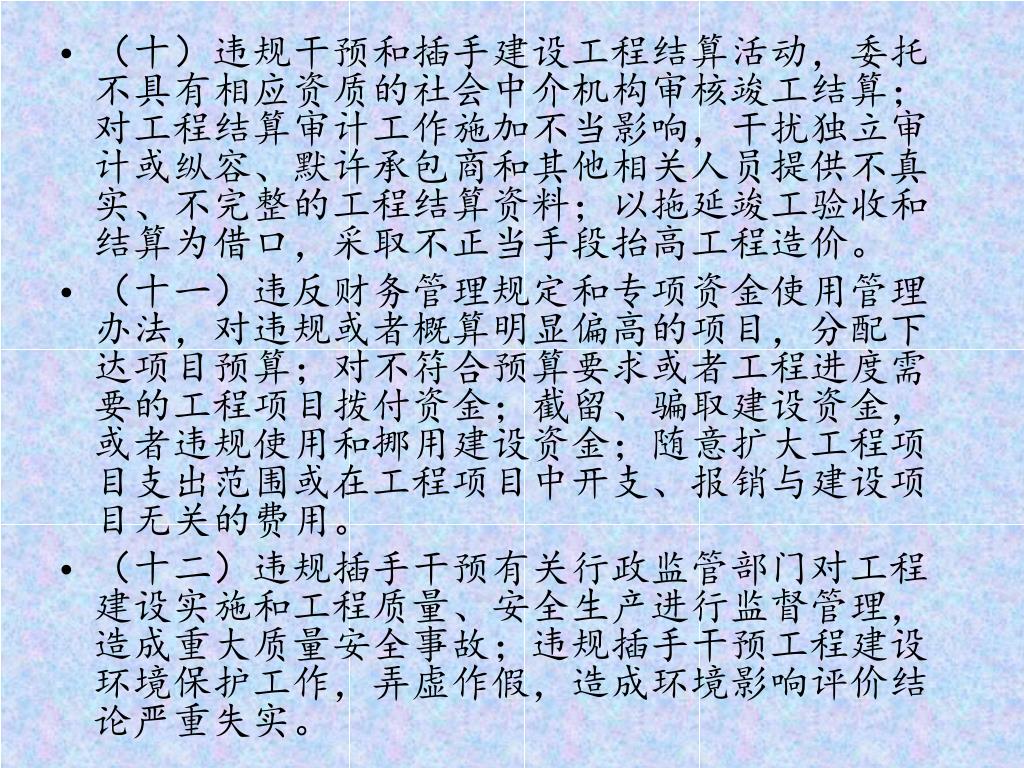 • （十）违规干预和插手建设工程结算活动，委托
不具有相应资质的社会中介机构审核竣工结算；
对工程结算审计工作施加不当影响，干扰独立审
计或纵容、默许承包商和其他相关人员提供不真
实、不完整的工程结算资料；以拖延竣工验收和
结算为借口，采取不正当手段抬高工程造价。
• （十一）违反财务管理规定和专项资金使用管理
办法，对违规或者概算明显偏高的项目，分配下
达项目预算；对不符合预算要求或者工程进度需
要的工程项目拨付资金；截留、骗取建设资金，
或者违规使用和挪用建设资金；随意扩大工程项
目支出范围或在工程项目中开支、报销与建设项
目无关的费用。
• （十二）违规插手干预有关行政监管部门对工程
建设实施和工程质量、安全生产进行监督管理，
造成重大质量安全事故；违规插手干预工程建设
环境保护工作，弄虚作假，造成环境影响评价结
论严重失实。